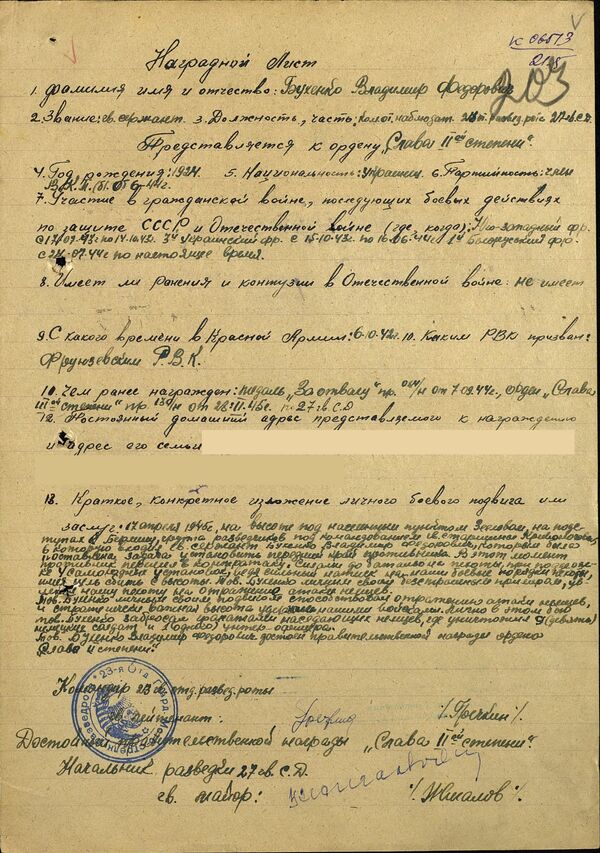 К 0657/3
203
Наградной Лист
1. Фамилия имя и отчество: Бухенко Владимир Федорович
2. Звание: гв. сержант. 3. Должность, часть: 27 гв. С.Д.
Представляется к ордену „Слава II ой степени".
4. Год рождения: 1924. 5. Национальность: украинец. 6. Партийность: член
В.К.П.(б). с 6-44г.
7. Участие в гражданской войне, последующих боевых действиях
по защите СССР и Отечественной войне (где, когда): Юго-Западный фр.
по 14.10.43г. 3й Украинский фр. с 15-10-43г. по 16-06-44г. 1й Белорусский фр.
по настоящее время.
8. Имеет ли ранения и контузии в Отечественной войне: не имеет
9. С какого времени в Красной Армии: 6-10-42г. 10. Каким РВК призван:
Фрунзевским Р.В.К.
10. Чем ранее награжден: медаль „За отвагу" пр. от 7.09.44г., орден „Слава
III ой степени" пр. от 28.III.45г. 27 гв. С.Д
12. Постоянный домашний адрес представляемого к награждению
и адрес его семьи
13. Краткое, конкретное изложение личного боевого подвига или
заслуг: 17 апреля 1945г, на высоте под населенным пунктом на подс-
тупах к Берлину, группа разведчиков под командованием гв. старшины
в которую входил гв. сержант Бухенко Владимир Федорович, которым была
поставлена задача установить передний край противника. В этот момент
противник перешел в контратаку. Силами до батальона пехоты при поддержке
5 самоходных установок
с высоты. Тов. Бухенко личным своим бесстрашным примером,
нашу пехоту на отражение атаки немцев.
Тов. Бухенко личным своим подвигом способствовал отражению атаки немцев,
и стратегически важная высота нашими войсками. Лично в этом бою
тов. Бухенко забросал гранатами наседающих немцев, где уничтожил 9 (девять)
немецких солдат и 1 (одного) унтер-офицера.
Тов. Бухенко Владимир Федорович достоин правительственной награды ордена
„Слава II степени".
Командир отд. развед. роты
гв. лейтенант: /. Гречкин /.
Достоин правительственной награды „Слава II ой степени".
Начальник разведки 27 гв. С.Д.
гв. майор: